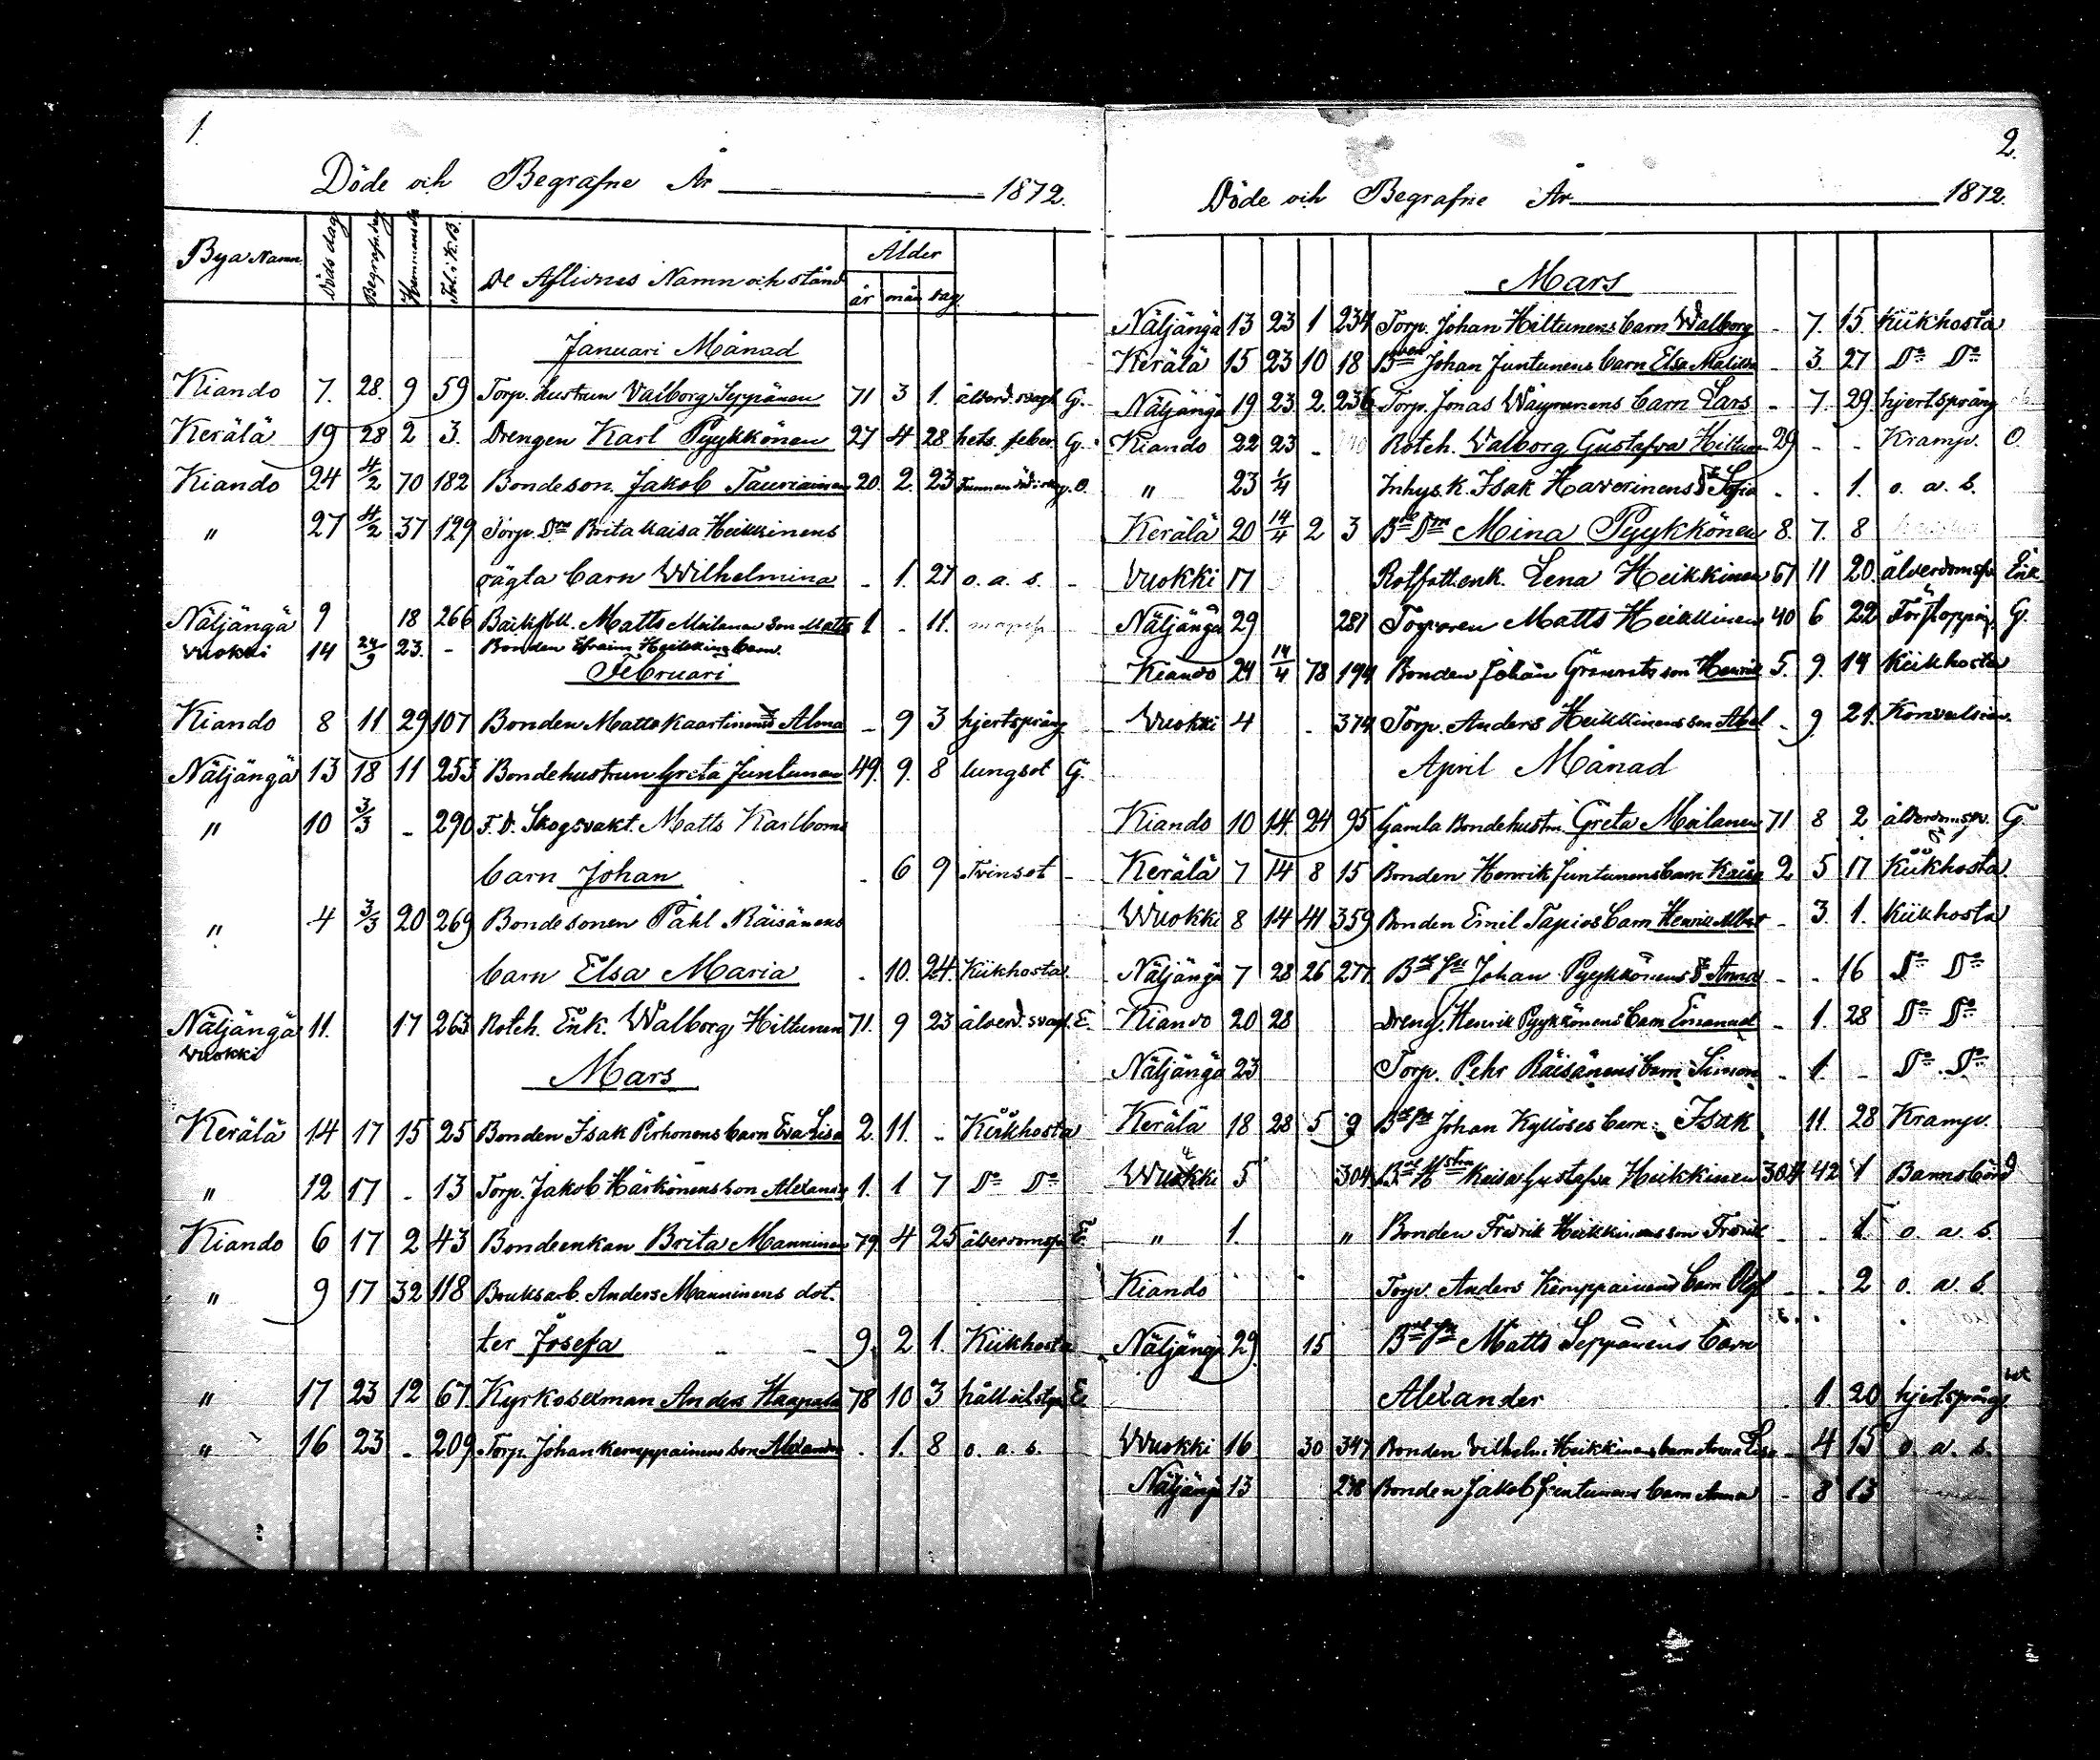 1.
Döde och Begrafne År 1872.
Bya Namn Döds dag Begrafn. dag Hemmans № Fol. i K.B. De Aflidnes Namn och stånd Ålder
år mån dag
Januari Månad
Kiando 7. 28. 9 59 Torp. hustrun Valborg Seppänen 71 3 1. ålderd. svagh. G.
Kerälä 19 28 2 3. Drengen Karl Pyykkönen 27 4 28 hets. feber G.
Kiando 24 4/2 70 182 Bondeson. Jakob Tauriainen 20. 2. 23 O.
" 27 4/2 37 129 Torp. Dr Brita Kaisa Heikkinens
oägta barn Wilhelmina - 1. 27 o. a. s. -
Näljängä 9 18 266 Matts Moilanen son Matts 1 - 11.
Vuokki 14 24/9 23. - Bonden Efraim Heikkinens barn.
Februari
Kiando 8 11 29 107 Bonden Matts Kaartinens dr Alma - 9 3 hjertsprång
Näljängä 13 18 11 253 Bondehustrun Greta Juntunen 49. 9. 8 lungsot G.
" 10 3/3 - 290 F.d. Skogsvakt. Matts Karlboms
barn Johan - 6 9 Tvinsot -
" 4 3/3 20 269 Bondesonen Påhl Räisänens
barn Elsa Maria - 10. 24. Kikhosta
Näljängä 11. 17 263 Roteh. Enk. Walborg Hiltunen 71. 9 23 ålderd. svagh. E.
Vuokki
Mars
Kerälä 14 17 15 25 Bonden Isak Pirhonens barn Eva Lisa 2. 11. - Kikhosta
" 12 17 - 13 Torp. Jakob Härkönens son Alexander 1. 1 7 Do Do
Kiando 6 17 2 43 Bondeenkan Brita Manninen 79. 4 25 ålderdomssv. E.
" 9 17 32 118 Bruksarb. Anders Manninens dot-
ter Josefa - - 9. 2 1. Kikhosta
" 17 23 12 67. Kyrkosexman Anders Haapala 78 10 3 håll och styng E.
" 16 23 - 209 Torp. Johan Kemppainens son Alexander - 1. 8 o. a. s.
2.
Döde och Begrafne År 1872.
Mars
Näljängä 13 23 1 234 Torp. Johan Hiltunens barn Walborg - 7. 15. Kikhosta
Kerälä 15 23 10 18 Johan Juntunens barn Elsa Matilda - 3. 27 Do Do
Näljängä 19 23 2. 236 Torp. Jonas Wäyrynens barn Lars - 7. 29 hjertsprång
Kiando 22 23 - Roteh. Walborg Gustafva Hiltun 29 - - Kramp. O.
" 23 1/4 Inhys. K. Isak Haverinens dr Sofia - - 1. o. a. s.
Kerälä 20 14/4 2 3 Bde Dr Mina Pyykkönen 8. 7. 8
Vuokki 17 Rotfattenk. Lena Heikkinen 67 11 20. ålderdomssv. Enk
Näljängä 29 287 Torparen Matts Heikkinen 40 6 22 Förstoppning. G.
Kiando 24 14/4 78 194 Bonden Johan son Henrik 5. 9. 14 Kikhosta
Vuokki 4 - 374 Torp. Anders Heikkinens son Abel - 9. 21. Konvulsion.
April Månad
Kiando 10 14 24 95 Gamla Bondehustr. Greta Moilanen 71 8 2 ålderdomssv. G.
Kerälä 7 14 8 15 Bonden Henrik Juntunens barn Kaisa 2 5 17 Kikhosta
Wuokki 8 14 41 359 Bonden Emil Tapios barn Henrik Albert - 3. 1. Kikhosta
Näljängä 7 28 26 277 Bde Sn Johan Pyykkönens dr Anna - - 16 Do Do
Kiando 20 28 Dreng. Henrik Pyykkönens barn Emanuel - 1. 28 Do Do
Näljängä 23 Torp. Pehr Räisänens barn Simon - 1. - Do Do
Kerälä 18 28 5 9 Bde Sn Johan Kyllöses barn Isak 11. 28 Kramp.
Wuokki 5 304 Bde Hstru Kaisa Gustafva Heikkinen 1 Barnsbörd
" 1. " Bonden Fredrik Heikkinens son Fredrik - - 1. o. a. s.
Kiando Torp. Anders Kemppainens barn - - 2 o. a. s.
Näljängä 29. 15 Bde Sn Matts Seppänens barn
Alexander 1 20 hjertsprång
Wuokki 16 30 347 Bonden Vilhelm Heikkinens barn Anna Lisa - 4 15 o. a. s.
Näljängä 13 278 Bonden Jakob Juntunens barn Anna - 8 13